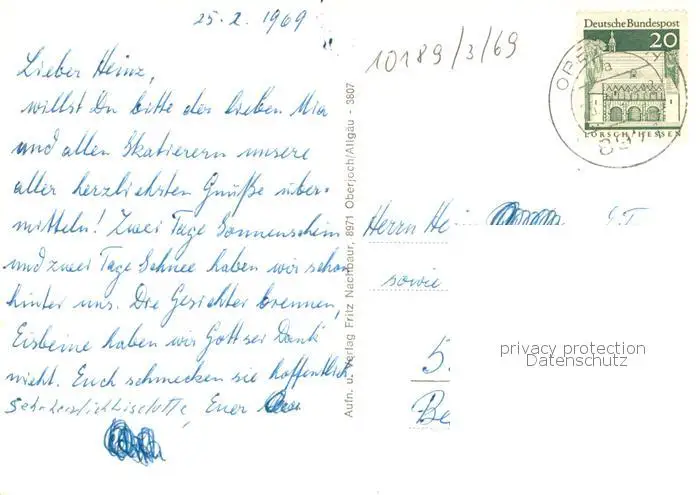 25.2.1969
10189/3/69
Deutsche Bundespost
20
LORSCH/HESSEN
897
Lieber Heinz,
willst Du bitte der lieben Mia
und allen Skatierern unsere
aller herzlichsten Grüße über-
mitteln! Zwei Tage Sonnenschein
und zwei Tage Schnee haben wir schon
hinter uns. Die Gesichter brennen,
Eisbeine haben wir Gott sei Dank
nicht. Euch schmecken sie hoffentlich.
Euer
Aufn. u. Verlag Fritz Nachbaur, 8971 Oberjoch/Allgäu - 3807
Herrn He
sowie
5.
Be
privacy protection
Datenschutz